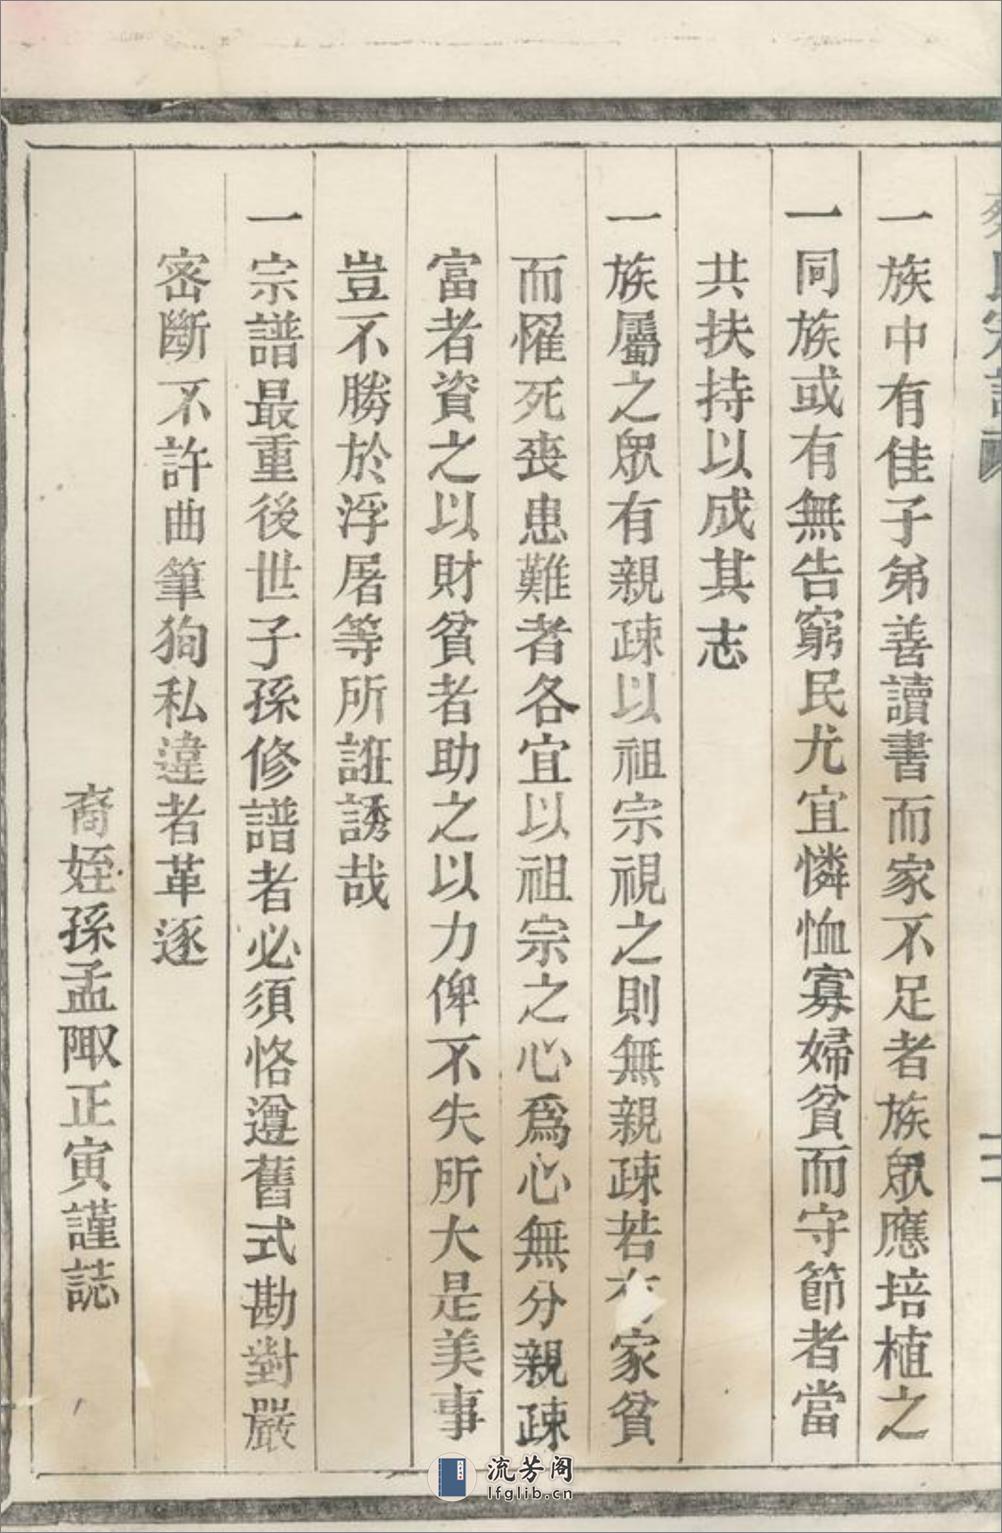 一族中有佳子弟善讀書而家不足者族眾應培植之
一同族或有無告窮民尤宜憐恤寡婦貧而守節者當
共扶持以成其志
一族屬之眾有親疎以祖宗視之則無親疎若 家貧
而罹死喪患難者各宜以祖宗之心爲心無分親疎
富者資之以財貧者助之以力俾不失所大是美事
豈不勝於浮屠等所誑誘哉
一宗譜最重後世子孫修譜者必須恪遵舊式勘對嚴
密斷不許曲筆狥私違者革逐
裔姪孫孟陬正寅謹誌
流芳阁
lfglib.cn